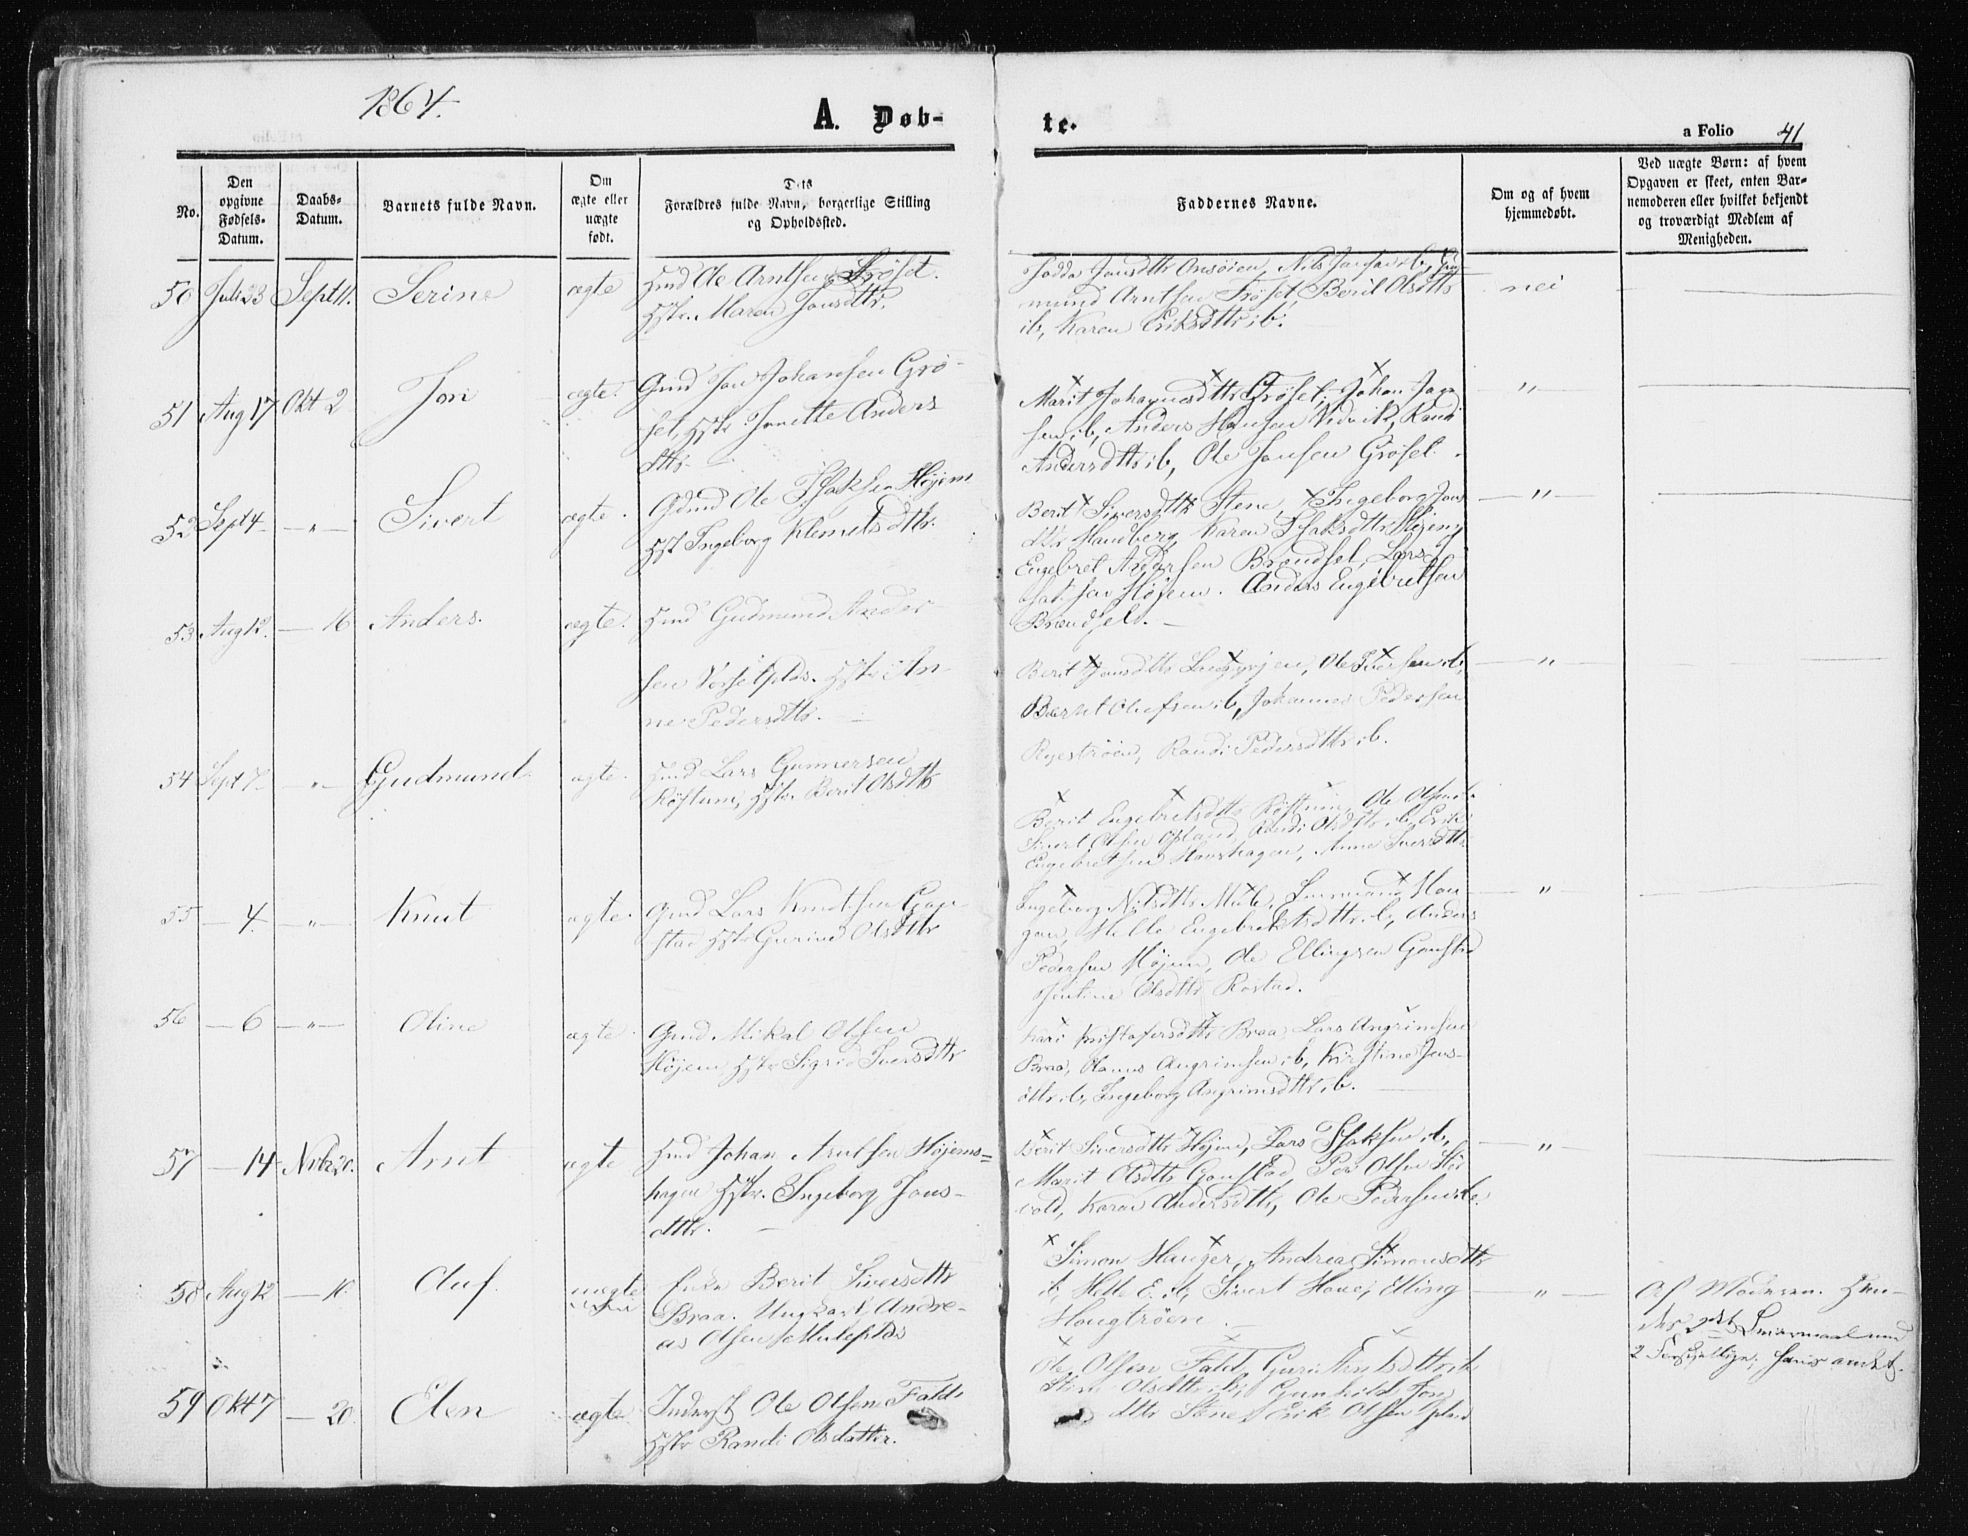 1864.
A. Døb-
te.
a Folio 41
No.
Den opgivne Fødsels-Datum.
Daabs-Datum.
Barnets fulde Navn.
Om ægte eller uægte født.
Dets Forældres fulde Navn, borgerlige Stilling og Opholdssted.
Faddernes Navne.
Om og af hvem hjemmedøbt.
Ved uægte Børn: af hvem Opgaven er skeet, enten Barnemoderen eller hvilket bekjendt og troværdigt Medlem af Menigheden.
50 Juli 23 Sept 11. Serine ægte Hmd Ole Arntsen
Hstr. Maren Jonsdttr.
Nils
mund Arntsen Frøset, Berit Olsdttr
ib, Karen Eriksdttr ib.
nei
51 Aug 17 Okt 2 Jon ægte. Gmd Jon Johansen Grø-
set, Hstr Jonette Anders
dttr
Marit Johannesdttr Grøset, Johan
sen ib, Anders Hansen Vidvik, Randi
Andersdttr ib, Ole Jonsen Grøset.
"
52 Sept 4 — " — Sivert ægte. Gdmd Ole Isaksen Højem
Hst Ingeborg Klemetsdttr.
Berit Siversdttr Stene, Ingeborg Jons
dttr Sandberg, Karen Isaksdttr Højem
Engebret Andersen Brændsel, Lars I-
saksen Højem. Anders Engebretsen
Brændsel.
— " —
53 Aug 12. — 16 Anders. ægte. Hmd Gudmund Ander-
sen Hstr An-
ne Pedersdttr.
Berit Jonsdttr Ole Iversen ib,
Olufsen ib, Johannes Pedersen
Ryestrøen, Randi Pedersdttr ib.
— " —
54 Sept 7 — " — Gudmund. ægte. Hmd Lars Gunnersen
Røstum, Hstr. Berit Olsdttr
Berit Engebretsdttr Røstum, Ole Olsen ib.
Sivert Olsen Opland, Randi Olsdttr ib, Erik
Engebretsen Hovshagen, Anne Iversdttr
55 — 4. — " — Knut ægte. Gmd Lars Knudtsen Gon-
stad Hstr Gurine Olsdttr
Ingeborg Nilsdttr Mule,
gan, Helle Engebrektsdttr ib, Anders
Pedersen Højem, Ole Ellingsen Gonstad
Olsdttr Rostad.
— " —
56 — 6 — " — Oline ægte. Gmd Mikal Olsen
Højem Hstr Sigrid Iversdttr
Kari Kristofersdttr Braa, Lars Angrimsen
Braa, Hanns Angrimsen ib, Kirstine Jens-
dttr ib, Ingeborg Angrimsdttr ib.
57 — 14 Nvbr 20. Arnt ægte Hmd Johan Arntsen Højems-
hagen Hstr. Ingeborg Jons-
dttr.
Berit Siversdttr Højem, Lars Isaksen ib,
Marit Olsdttr Gonstad, Per Olsen
vold, Karen Andersdttr, Ole
— " —
58 Aug 12 — 10. Oluf. uægte Enke Berit Siversdttr
Braa. Ungkarl Andre-
as Olsen Muleplds
Simon Hauger, Andrea Simonsdttr
ib, Helle E. ib, Sivert Hove, Elling
Hougtrøen.
— " —
Af Moderen. Hen-
des 2det Leiermaal med
2 Forskjellige; hans andet.
59 Okt 7 — 20. Elen ægte Inderst Ole Olsen Fald
Hstr Randi Olsdatter.
Ole Olsen Fald, Guri Arntsdttr ib
Stine Olsdttr ib, Gunhild Jon
dttr Stene, Erik Olsen